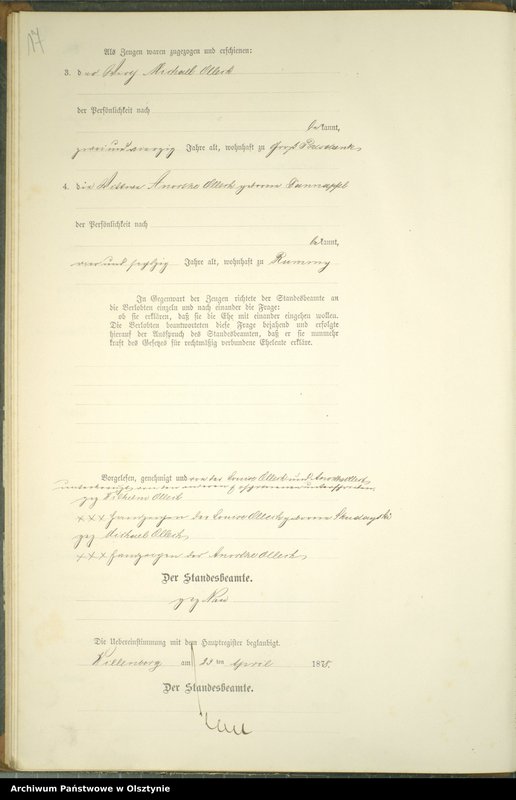 17
Als Zeugen waren zugezogen und erschienen:
3. der Michael Olleck
der Persönlichkeit nach
bekannt,
zweiundvierzig Jahre alt, wohnhaft zu Groß
4. die Olleck geborene
der Persönlichkeit nach
bekannt,
Jahre alt, wohnhaft zu Rummy
In Gegenwart der Zeugen richtete der Standesbeamte an
die Verlobten einzeln und nach einander die Frage:
ob sie erklären, daß sie die Ehe mit einander eingehen wollen.
Die Verlobten beantworteten diese Frage bejahend und erfolgte
hierauf der Ausspruch des Standesbeamten, daß er sie nunmehr
kraft des Gesetzes für rechtmäßig verbundene Eheleute erkläre.
Vorgelesen, genehmigt und von der Louise Olleck und
unterkreuzt, von den anderen
gez Wilhelm Olleck
××× Handzeichen der Louise Olleck geborene
gez Michael Olleck
××× Handzeichen der Olleck
Der Standesbeamte.
gez
Die Uebereinstimmung mit dem Hauptregister beglaubigt.
Willenberg am 23 ten April 1878.
Der Standesbeamte.
Archiwum Państwowe w Olsztynie